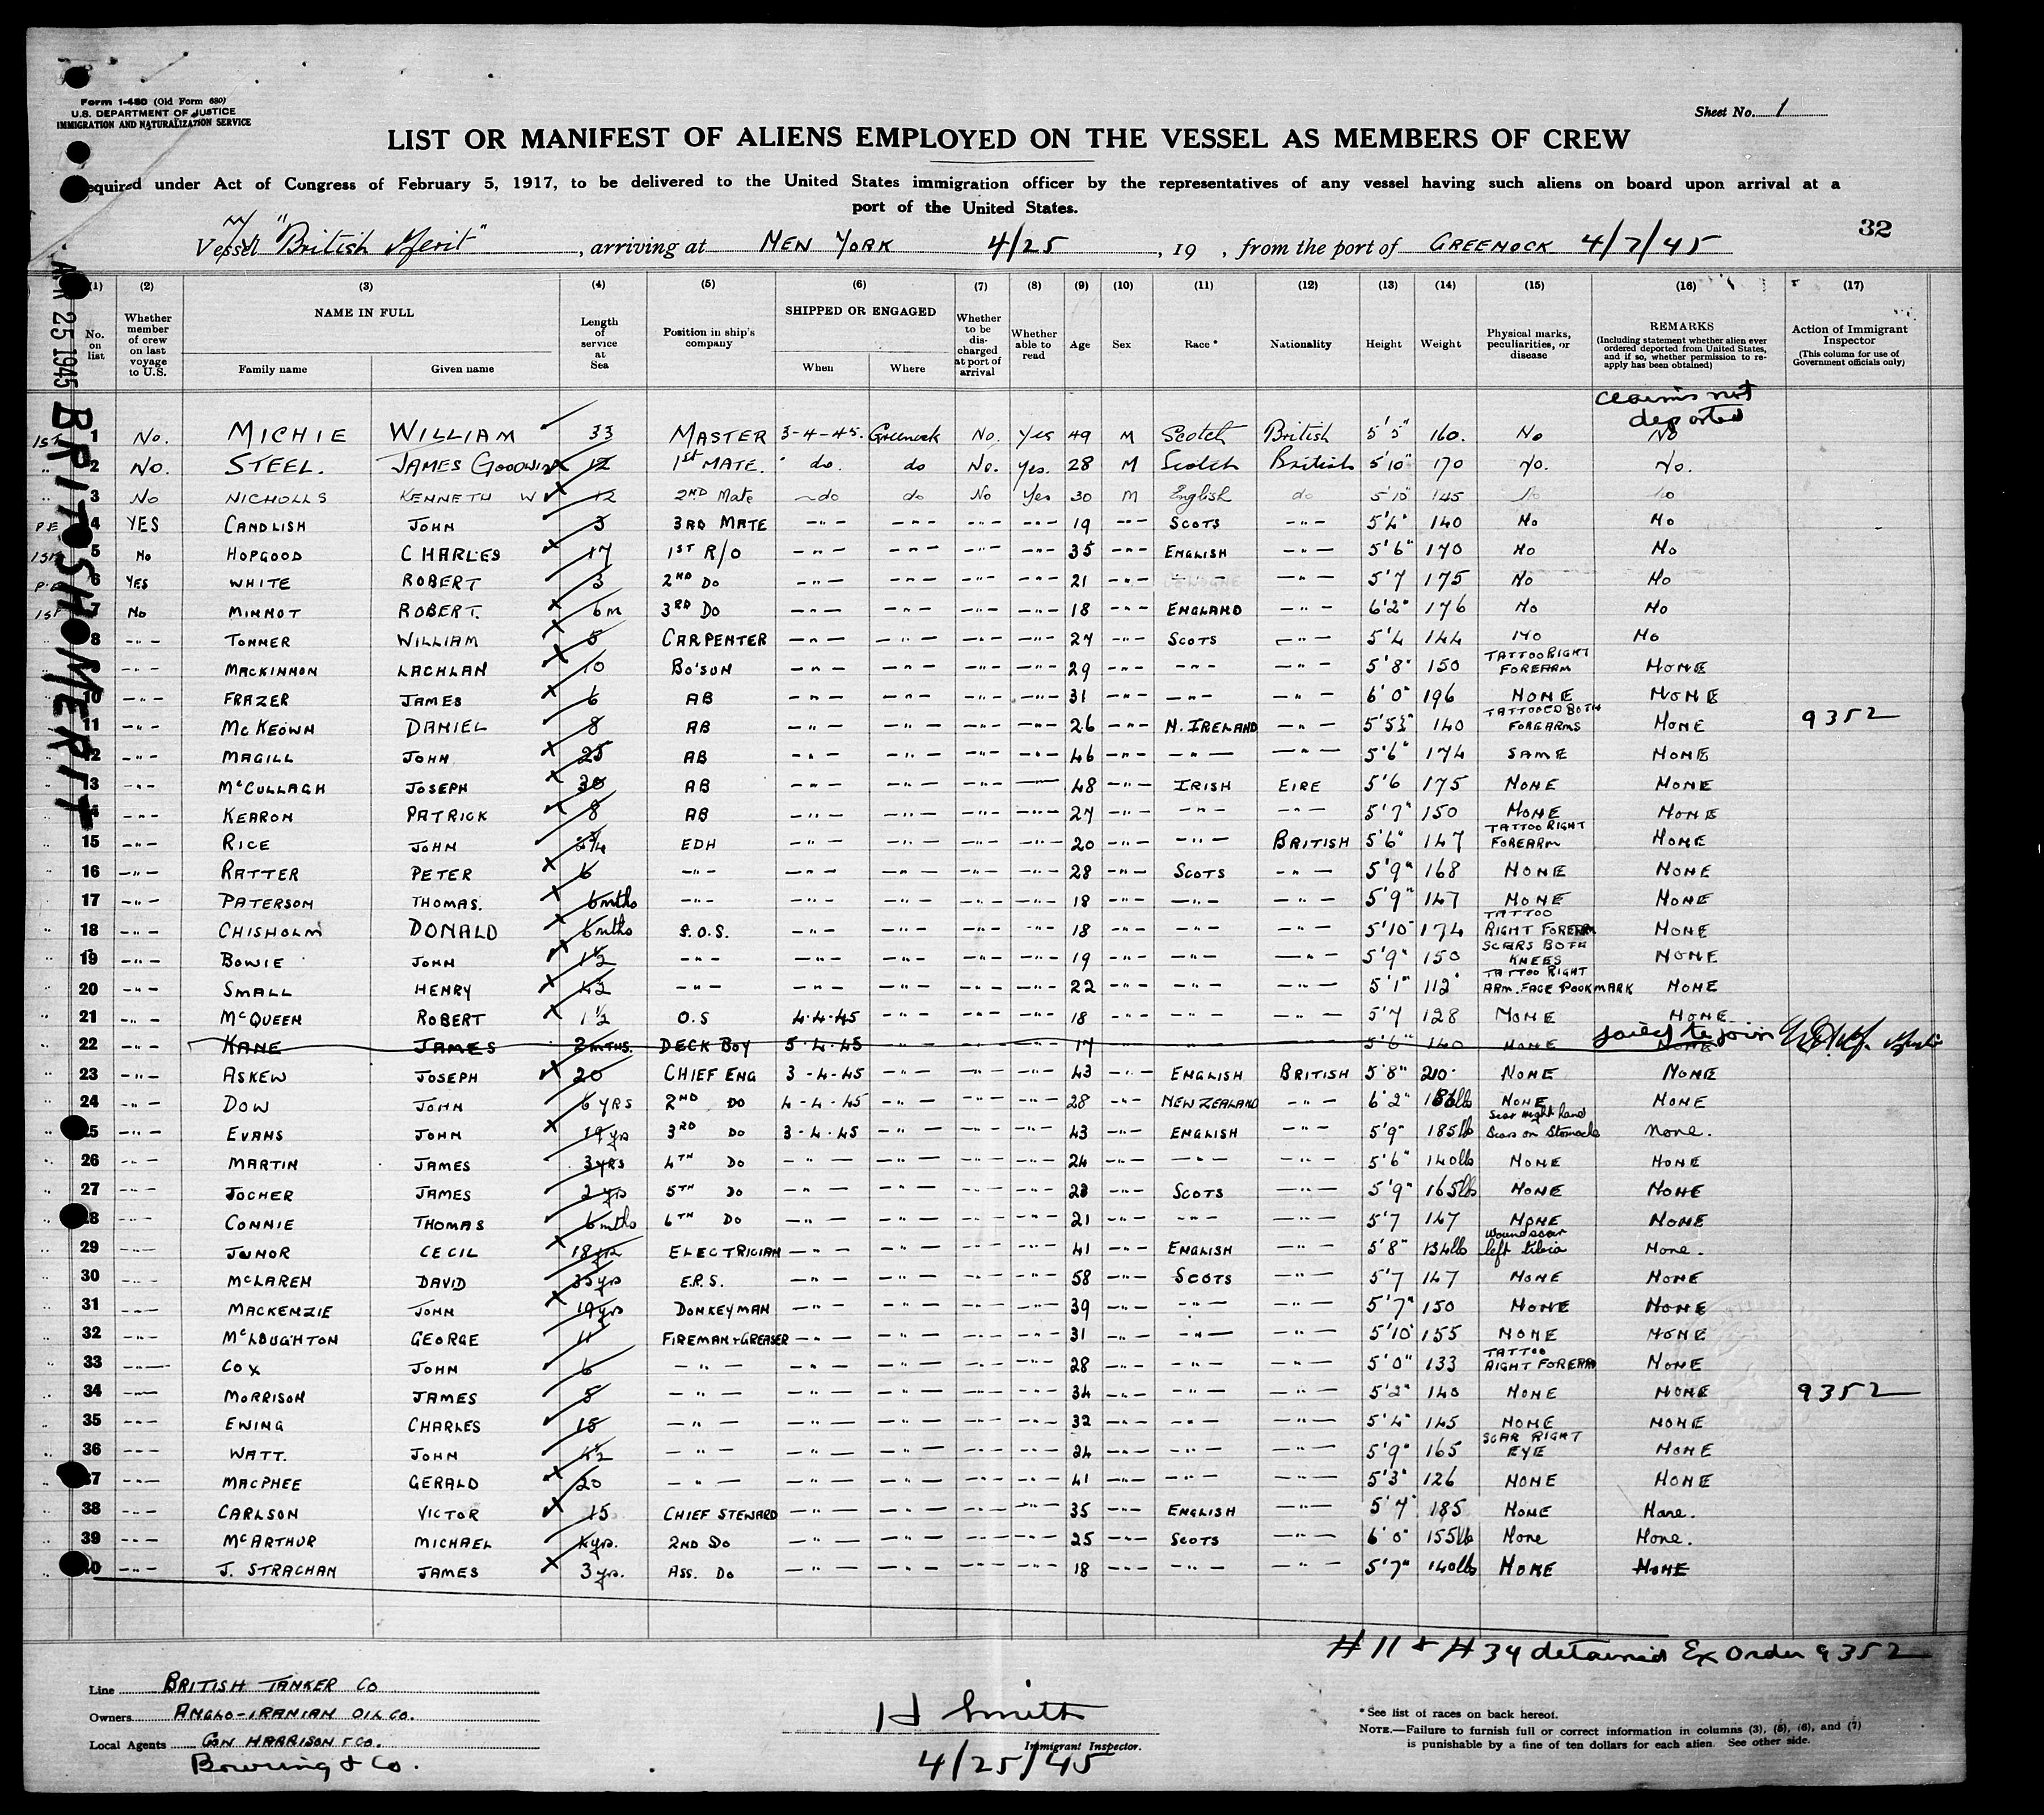 Form 1-480 (Old Form 680)
U.S. DEPARTMENT OF JUSTICE
IMMIGRATION AND NATURALIZATION SERVICE
Sheet No. 1
LIST OR MANIFEST OF ALIENS EMPLOYED ON THE VESSEL AS MEMBERS OF CREW
equired under Act of Congress of February 5, 1917, to be delivered to the United States immigration officer by the representatives of any vessel having such aliens on board upon arrival at a
port of the United States.
32
Vessel "British Merit", arriving at NEW YORK 4/25, 19 , from the port of GREENOCK 4/7/45
APR 25 1945 BRITISH MERIT
(1) (2) (3) (4) (5) (6) (7) (8) (9) (10) (11) (12) (13) (14) (15) (16) (17)
No. on list
Whether member of crew on last voyage to U.S.
NAME IN FULL
Family name Given name
Length of service at Sea
Position in ship's company
SHIPPED OR ENGAGED
When Where
Whether to be discharged at port of arrival
Whether able to read
Age Sex Race* Nationality Height Weight
Physical marks, peculiarities, or disease
REMARKS
(Including statement whether alien ever ordered deported from United States, and if so, whether permission to reapply has been obtained)
Action of Immigrant Inspector
(This column for use of Government officials only)
claims not
deported
1ST 1 No. MICHIE WILLIAM 33 MASTER 3-4-45. Greenock No. Yes 49 M Scotch British 5'5" 160. No No
" 2 No. STEEL. JAMES GOODWIN 12 1st MATE. do. do No. Yes. 28 M Scotch British 5'10" 170 No. No.
" 3 No NICHOLLS KENNETH W 12 2ND Mate do do No Yes 30 M English do 5'10" 145 No No
PE 4 YES CANDLISH JOHN 3 3RD MATE -"- -"- -"- -"- 19 -"- SCOTS -"- 5'4" 140 No No
1ST 5 No HOPGOOD CHARLES 17 1ST R/O -"- -"- -"- -"- 35 -"- ENGLISH -"- 5'6" 170 No No
P.E 6 YES WHITE ROBERT 3 2ND DO -"- -"- -"- -"- 21 -"- -"- -"- 5'7 175 No No
1ST 7 No MINNOT ROBERT. 6m 3RD DO -"- -"- -"- -"- 18 -"- ENGLAND -"- 6'2" 176 No No
" 8 -"- TONNER WILLIAM 5 CARPENTER -"- -"- -"- -"- 27 -"- SCOTS -"- 5'4 144 NO No
" -"- MACKINNON LACHLAN 10 BO'SUN -"- -"- -"- -"- 29 -"- -"- -"- 5'8" 150 TATTOO RIGHT FOREARM NONE
" 10 -"- FRAZER JAMES 6 AB -"- -"- -"- -"- 31 -"- -"- -"- 6'0" 196 NONE NONE
" 11 -"- McKEOWN DANIEL 8 AB -"- -"- -"- -"- 26 -"- N. IRELAND -"- 5'5½" 140 TATTOOED BOTH FOREARMS NONE 9352
" 12 -"- MAGILL JOHN 25 AB -"- -"- -"- -"- 46 -"- -"- -"- 5'6" 174 SAME NONE
" 13 -"- McCULLAGH JOSEPH 30 AB -"- -"- -"- — 48 -"- IRISH EIRE 5'6 175 NONE NONE
" 14 -"- KEARON PATRICK 8 AB -"- -"- -"- -"- 27 -"- -"- -"- 5'7" 150 NONE NONE
" 15 -"- RICE JOHN EDH -"- -"- -"- -"- 20 -"- -"- BRITISH 5'6" 147 TATTOO RIGHT FOREARM NONE
" 16 -"- RATTER PETER 6 -"- -"- -"- -"- -"- 28 -"- SCOTS -"- 5'9" 168 NONE NONE
" 17 -"- PATERSON THOMAS. 6mths -"- -"- -"- -"- -"- 18 -"- -"- -"- 5'9" 147 NONE NONE
" 18 -"- CHISHOLM DONALD 6mths S.O.S. -"- -"- -"- -"- 18 -"- -"- -"- 5'10" 174 TATTOO RIGHT FOREARM NONE
" 19 -"- BOWIE JOHN 1½ -"- -"- -"- -"- -"- 19 -"- -"- -"- 5'9" 150 SCARS BOTH KNEES NONE
" 20 -"- SMALL HENRY 4½ -"- -"- -"- -"- -"- 22 -"- -"- -"- 5'1" 112 TATTOO RIGHT ARM. FACE POCKMARK NONE
" 21 -"- McQUEEN ROBERT 1½ O.S 4.4.45 -"- -"- -"- 18 -"- -"- -"- 5'7 128 NONE NONE
22 -"- KANE JAMES 2 MTHS. DECK BOY 5.4.45 17 5'6" 140 NONE NONE failed to join
" 23 -"- ASKEW JOSEPH 20 CHIEF ENG 3-4-45 -"- -"- -"- 43 -"- ENGLISH BRITISH 5'8" 210 NONE NONE
" 24 -"- DOW JOHN 6 YRS 2ND DO 4-4-45 -"- -"- -"- 28 -"- NEW ZEALAND -"- 6'2" 186lb NONE NONE
" 25 -"- EVANS JOHN 19 yrs 3RD DO 3-4-45 -"- -"- -"- 43 -"- ENGLISH -"- 5'9" 185lb Scar right hand Scars on Stomach None.
" 26 -"- MARTIN JAMES 3 YRS 4TH DO -"- -"- -"- -"- 24 -"- -"- -"- 5'6" 140lb NONE NONE
" 27 -"- JOCHER JAMES 2 yrs 5TH DO -"- -"- -"- -"- 23 -"- SCOTS -"- 5'9" 165lb NONE NONE
" 28 -"- CONNIE THOMAS 6mths 6TH DO -"- -"- -"- -"- 21 -"- -"- -"- 5'7 147 NONE NONE
" 29 -"- JUNOR CECIL 18 yrs ELECTRICIAN -"- -"- -"- -"- 41 -"- ENGLISH -"- 5'8" 134lb Wound scar left tibia None.
" 30 -"- McLAREN DAVID 35 yrs E.R.S. -"- -"- -"- -"- 58 -"- SCOTS -"- 5'7 147 NONE NONE
" 31 -"- MACKENZIE JOHN 19 yrs DONKEYMAN -"- -"- -"- -"- 39 -"- -"- -"- 5'7" 150 NONE NONE
" 32 -"- McLOUGHTON GEORGE 11 FIREMAN + GREASER -"- -"- -"- -"- 31 -"- -"- -"- 5'10" 155 NONE NONE
" 33 -"- COX JOHN 6 -"- -"- -"- -"- -"- 28 -"- -"- -"- 5'0" 133 TATTOO RIGHT FOREARM NONE
" 34 -"- MORRISON JAMES 5 -"- -"- -"- -"- -"- 34 -"- -"- -"- 5'2" 140 NONE NONE 9352
" 35 -"- EWING CHARLES 15 -"- -"- -"- -"- -"- 32 -"- -"- -"- 5'4" 145 NONE NONE
" 36 -"- WATT. JOHN 4½ -"- -"- -"- -"- -"- 24 -"- -"- -"- 5'9" 165 SCAR RIGHT EYE NONE
" 37 -"- MACPHEE GERALD 20 -"- -"- -"- -"- -"- 41 -"- -"- -"- 5'3" 126 NONE NONE
" 38 -"- CARLSON VICTOR 15 CHIEF STEWARD -"- -"- -"- -"- 35 -"- ENGLISH -"- 5'7" 185 NONE None.
" 39 -"- McARTHUR MICHAEL 4 yrs. 2ND DO -"- -"- -"- -"- 25 -"- SCOTS -"- 6'0" 155lb None None.
" 40 -"- J. STRACHAN JAMES 3 yrs. ASS. DO -"- -"- -"- -"- 18 -"- -"- -"- 5'7" 140lb NONE NONE
# 11 + # 34 detained Ex Order 9352
Line BRITISH TANKER CO
Owners ANGLO-IRANIAN OIL CO.
Local Agents GON HARRISON + CO.
Bowring & Co.
H Smith
Immigrant Inspector.
4/25/45
*See list of races on back hereof.
NOTE.—Failure to furnish full or correct information in columns (3), (5), (6), and (7)
is punishable by a fine of ten dollars for each alien. See other side.